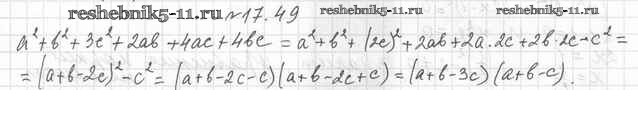 reshebnik5-11.ru №17.49 reshebnik5-11.ru reshebnik5-11.ru
a²+b²+3c²+2ab+4ac+4bc = a²+b²+(2c)²+2ab+2a·2c+2b·2c-c² =
= (a+b-2c)²-c² = (a+b-2c-c)(a+b-2c+c) = (a+b-3c)(a+b-c).